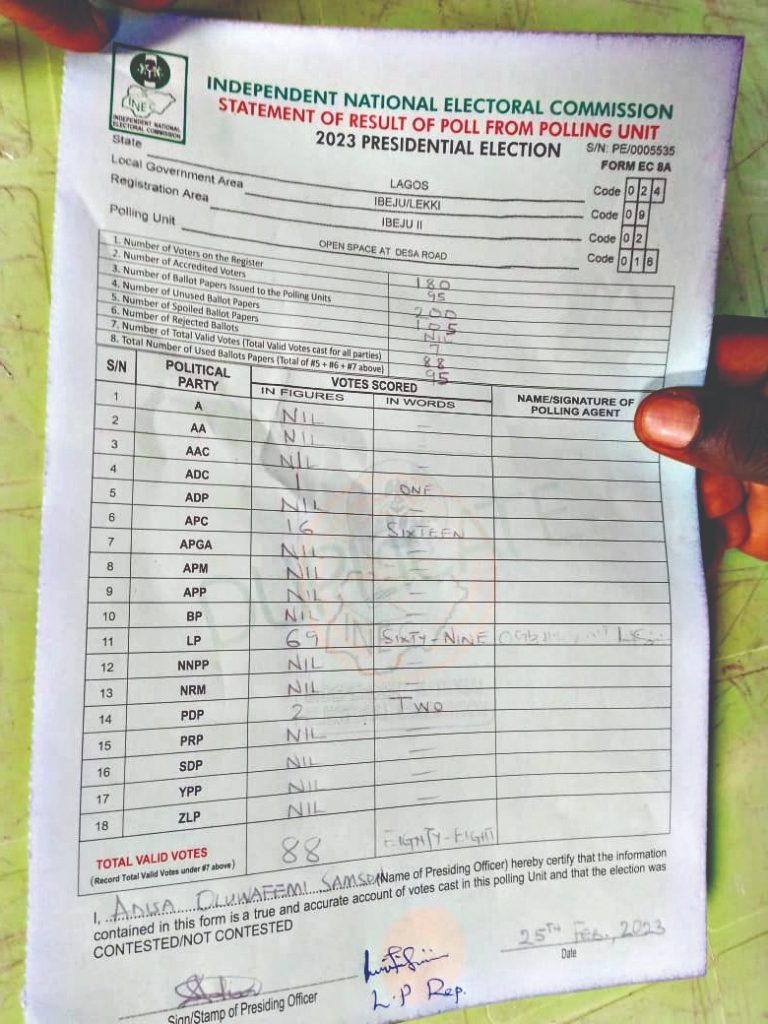 INEC
INDEPENDENT NATIONAL
ELECTORAL COMMISSION
INDEPENDENT NATIONAL ELECTORAL COMMISSION
STATEMENT OF RESULT OF POLL FROM POLLING UNIT
2023 PRESIDENTIAL ELECTION
S/N: PE/0005535
FORM EC 8A
State LAGOS Code 0 2 4
Local Government Area IBEJU/LEKKI Code 0 9
Registration Area IBEJU II Code 0 2
Polling Unit OPEN SPACE AT DESA ROAD Code 0 1 6
1. Number of Voters on the Register 180
2. Number of Accredited Voters 95
3. Number of Ballot Papers Issued to the Polling Units 200
4. Number of Unused Ballot Papers 105
5. Number of Spoiled Ballot Papers NIL
6. Number of Rejected Ballots 7
7. Number of Total Valid Votes (Total Valid Votes cast for all parties) 88
8. Total Number of Used Ballots Papers (Total of #5 + #6 + #7 above) 95
S/N POLITICAL PARTY VOTES SCORED NAME/SIGNATURE OF POLLING AGENT
IN FIGURES IN WORDS
1 A NIL –
2 AA NIL –
3 AAC NIL –
4 ADC 1 ONE
5 ADP NIL –
6 APC 16 SIXTEEN
7 APGA NIL –
8 APM NIL –
9 APP NIL –
10 BP NIL –
11 LP 69 SIXTY-NINE
12 NNPP NIL –
13 NRM NIL –
14 PDP 2 TWO
15 PRP NIL –
16 SDP NIL –
17 YPP NIL –
18 ZLP NIL –
TOTAL VALID VOTES 88 EIGHTY-EIGHT
(Record Total Valid Votes under #7 above)
I, ADISA OLUWAFEMI SAMSON (Name of Presiding Officer) hereby certify that the information
contained in this form is a true and accurate account of votes cast in this polling Unit and that the election was
CONTESTED/NOT CONTESTED
25TH FEB., 2023
Date
Sign/Stamp of Presiding Officer
L.P Rep.